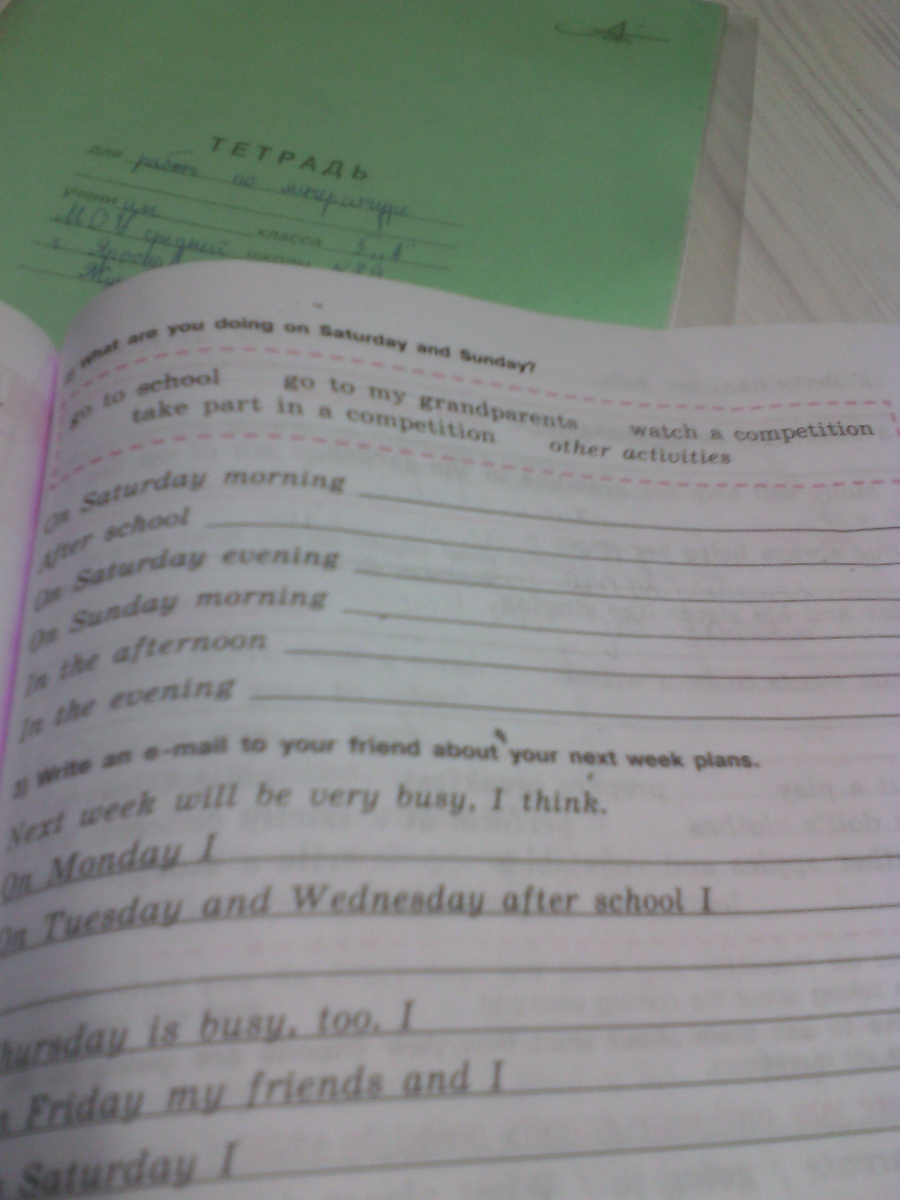 ТЕТРАДЬ
для работ по литературе
учени цы класса 5 „А"
МОУ средней школы №89
г. Яросл
) what are you doing on Saturday and Sunday?
go to school go to my grandparents watch a competition
take part in a competition other activities
On Saturday morning
After school
On Saturday evening
On Sunday morning
In the afternoon
In the evening
3) Write an e-mail to your friend about your next week plans.
Next week will be very busy, I think.
On Monday I
On Tuesday and Wednesday after school I
Thursday is busy, too. I
n Friday my friends and I
Saturday I